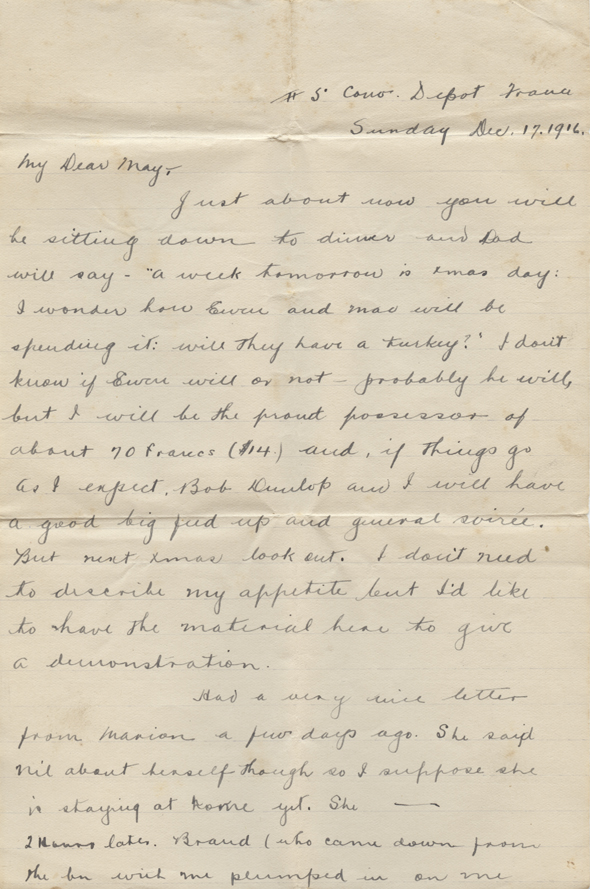 # 5 Conv. Depot France
Sunday Dec. 17. 1916.
My Dear May,
Just about now you will
be sitting down to dinner and Dad
will say - "a week tomorrow is xmas day:
I wonder how Ewen and Mac will be
spending it: will they have a turkey?" I don't
know if Ewen will or not - probably he will,
but I will be the proud possessor of
about 70 Francs ($14.) and, if things go
as I expect, Bob Dunlop and I will have
a good big feed up and general soirée.
But next xmas look out. I don't need
to describe my appetite but I'd like
to have the material here to give
a demonstration.
Had a very nice letter
from Marion a few days ago. She said
nil about herself though so I suppose she
is staying at home yet. She ——
2 Hours later. Brand (who came down from
the bn with me plumped in on me